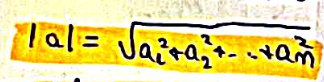 |a| = √(a₁²+a₂²+-..+am²)